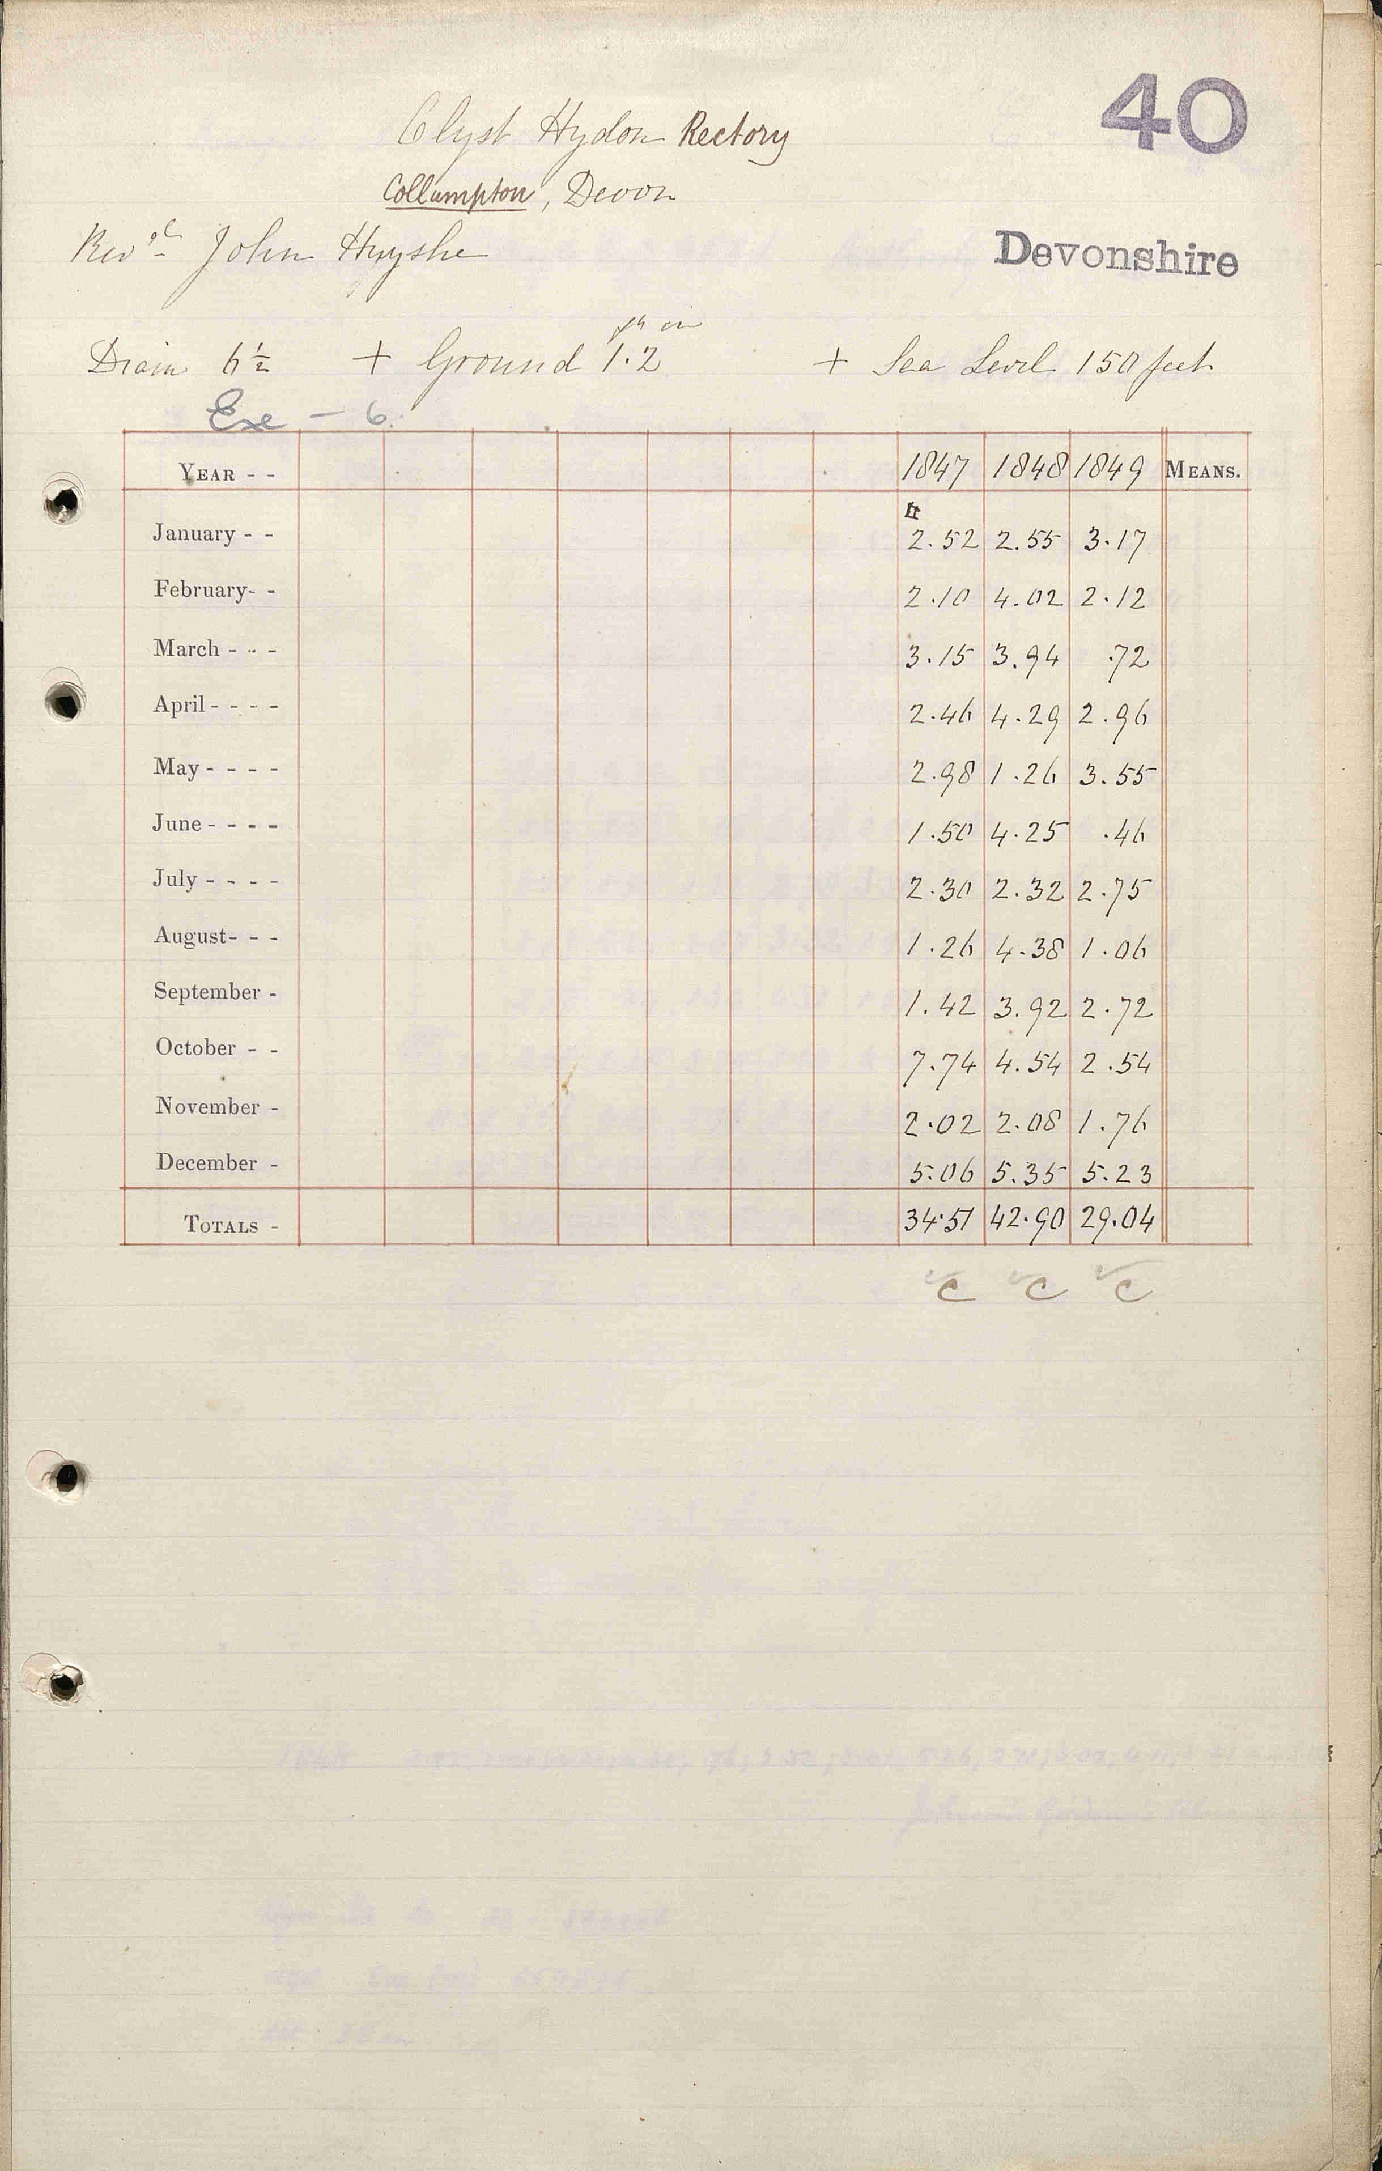 40
Clyst Hydon Rectory
Collumpton, Devon
Revd. John Huyshe
Devonshire
ft in
Diam 6½ + Ground 1.2 + Sea Level 150 feet
Exe - 6.
YEAR - - 1847 1848 1849 MEANS.
January - - 2.52 2.55 3.17
February- - 2.10 4.02 2.12
March - - - 3.15 3.94 .72
April - - - - 2.46 4.29 2.96
May - - - - 2.98 1.26 3.55
June - - - - 1.50 4.25 .46
July - - - - 2.30 2.32 2.75
August- - - 1.26 4.38 1.06
September - 1.42 3.92 2.72
October - - 7.74 4.54 2.54
November - 2.02 2.08 1.76
December - 5.06 5.35 5.23
TOTALS - 34.51 42.90 29.04
C C C